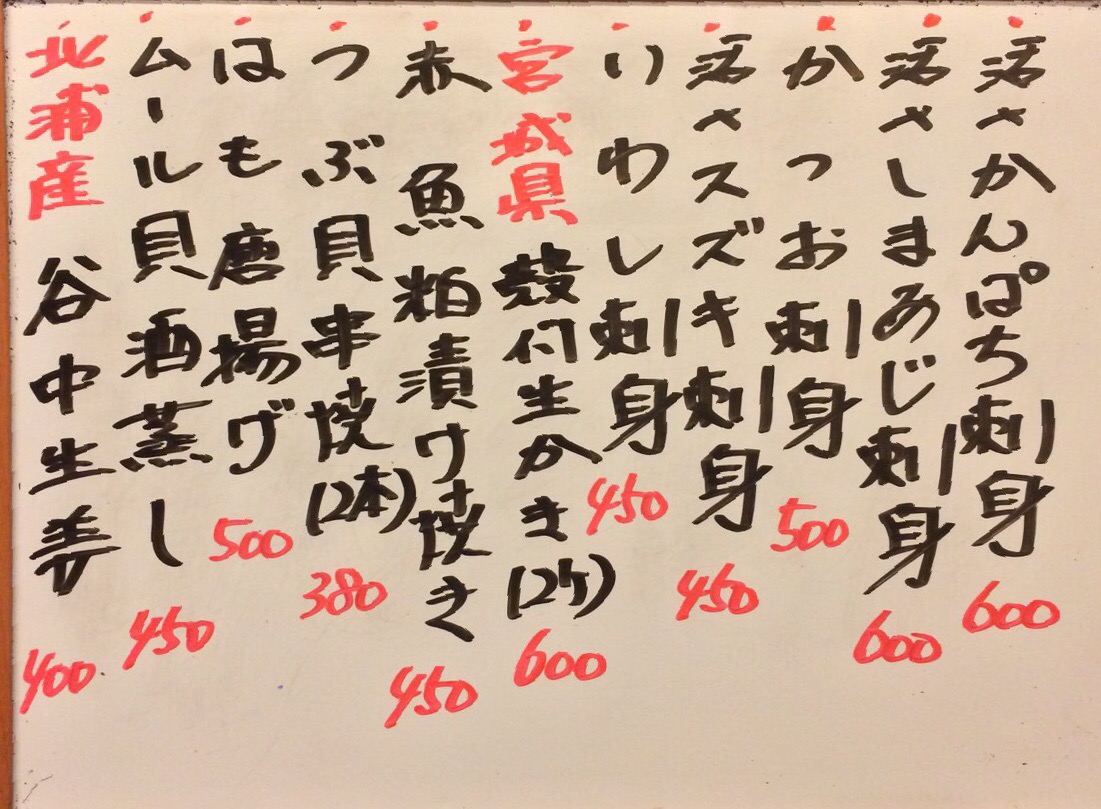 活〆かんぱち刺身 600
活〆しまあじ刺身 600
かつお刺身 500
活〆スズキ刺身 450
いわし刺身 450
宮城県 殻付生かき(2ヶ) 600
赤魚粕漬け焼き 450
つぶ貝串焼(2本) 380
はも唐揚げ 500
ムール貝酒蒸し 450
北浦産 谷中生姜 400